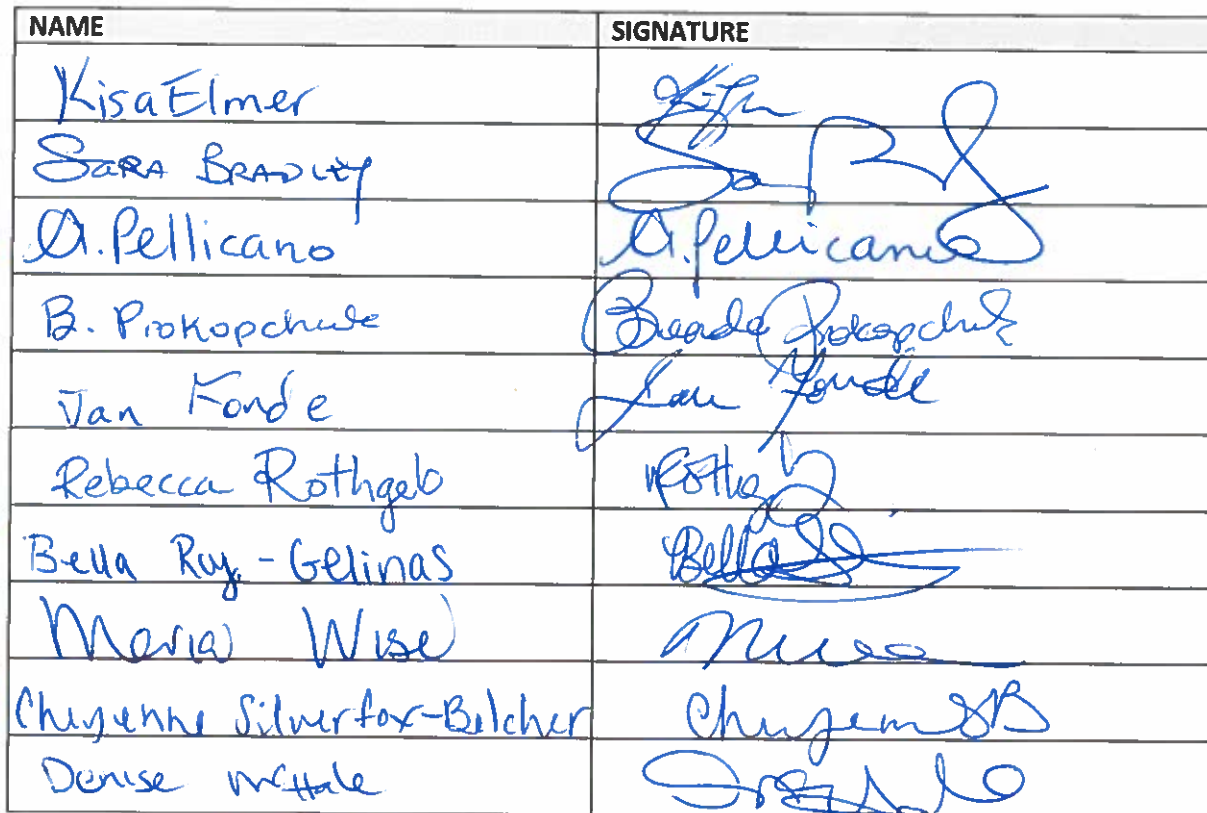 NAME SIGNATURE
Kisa Elmer
SARA BRADLEY
A. Pellicano A. Pellicano
B. Prokopchuk Brenda Prokopchuk
Jan Forde Jan Forde
Rebecca Rothgeb
Bella Roy-Gelinas Bella
Maria Wise
Cheyenne Silverfox-Belcher Cheyenne SB
Denise McHale